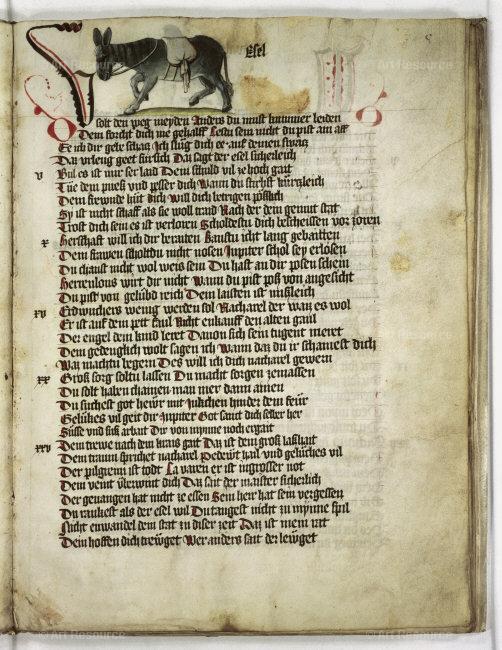 Esel
solt den weg meyden Anders du must kummer leiden
Dem forcht dich nie gehalff Lestu sein nicht du pist ain aff
Ee ich dir gebe schatz Ich slug dich ee auf deinen swatz
Daz urleug geet fürsich Daz sagt der esel sicherleich
v Vil es ist mir ser laid Dein schuld vil ze hoch gait
Tüe dein pueß und pesser dich Wann du stirbst kürzleich
Dein freunde hüt dich will dich betrigen
Sy ist nicht schaff als sie woll traid Nach der dein gemut stat
Trost dich sein es ist verloren Scholdestu dich bescheissen vor zoren
x Herschaft will ich dir beraiten Kanstu icht lang gebaitten
Dein frawen scholtdu nicht nosen Jupiter schol sey erlosen
Du chanst nicht wol weis sein Du hast an dir posen schein
Herrenlons wirt dir nicht Wann du pist pos von angesicht
Du pist von gelübd reich Dein laisten ist mißleich
xv Erdwuchers wenig werden sol Nachparel der waiz es wol
Er ist auf dem pett faul Nicht enkauff den alten gaul
Der engel dem kind leret Davon sich sein tugent meret
Dein gedenglich wolt sagen ich Wann daz du ir schamest dich
Waz machtu begern Des will ich dich nachparel gewern
xx Groß sorg soltu lassen Du macht sorgen zemassen
Du solt haben chainen man mer dann ainen
Du suchest got hewr mit hinder dem feür
Gelükes vil geit dir Jupiter Got sant dich selber her
Süsse und süß arbait Dir von mynne noch ergait
xxv Dein trewe nach dem kraus gait Daz ist dein groß
Dein traum sprichet nacharel Pedewt hail und gelückes vil
Der pilgreim ist todt La varen er ist ingrosser not
Dein veint überwint dich Daz sait der maister sicherlich
Der gevangen hat nicht ze essen Sein herr hat sein vergessen
Du rauhest als der esel wil Du tangest nicht zu mynne spil
Nicht enwandel dein stat zu diser zeit Daz ist mein rat
Dein hoffen dich trewget Wer anders sait der lewget
© Art Resource